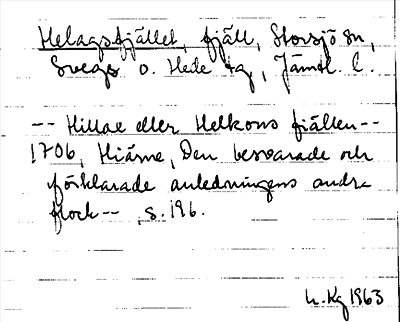 Helagsfjället, fjäll, Storsjö sn,
Svegs o. Hede tg, Jämtl. l.
-- Hillae eller Helkons fjällen --
1706, Hiärne, Den besvarade och
förklarade anledningens andra
flock -- , s. 196.
h. Kg 1963